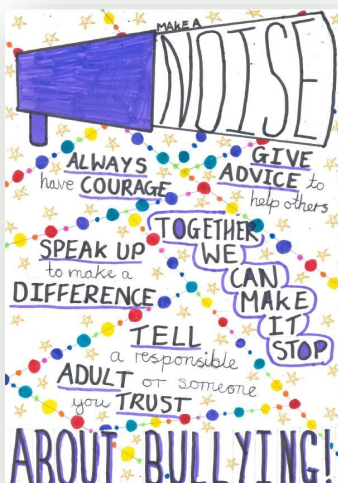 MAKE A
NOISE
ALWAYS
have COURAGE
GIVE
ADVICE to
help others
SPEAK UP
to make a
DIFFERENCE
TOGETHER
WE
CAN
MAKE
IT
STOP
TELL
a responsible
ADULT or someone
you TRUST
ABOUT BULLYING!